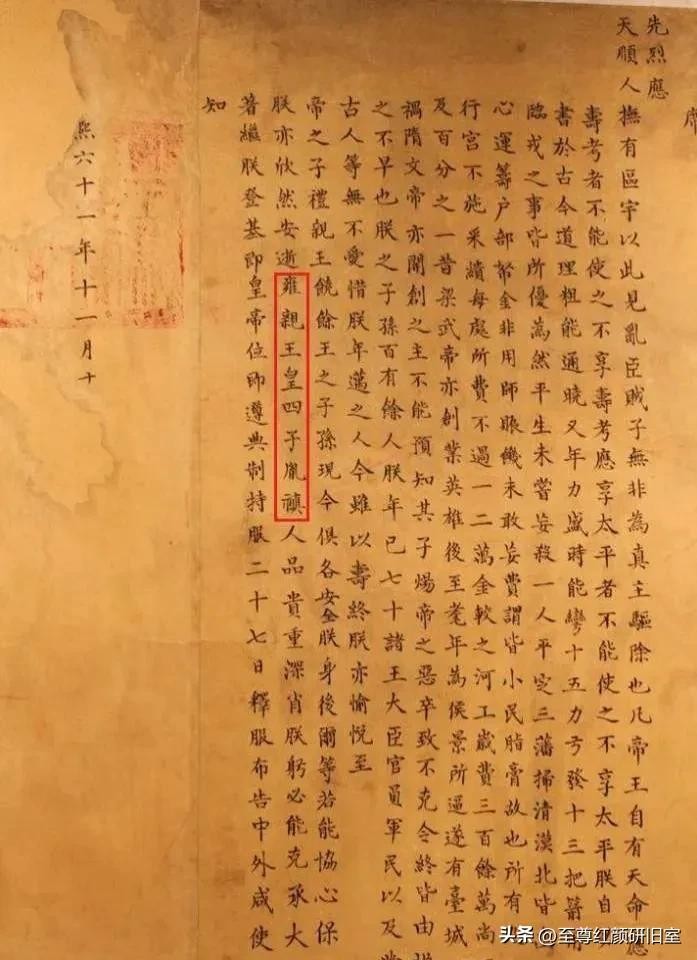 先烈應
天順人撫有區宇以此見亂臣賊子無非為真主驅除也凡帝王自有天命應
壽考者不能使之不享壽考應享太平者不能使之不享太平朕自
書於古今道理粗能通曉又年力盛時能彎十五力弓發十三把箭用
臨戎之事皆所優為然平生未嘗妄殺一人平定三藩掃清漠北皆
心運籌户部帑金非用師賑饑未敢妄費謂皆小民脂膏故也所有
行宮不施采繢每處所費不過一二萬金較之河工歲費三百餘萬尚
及百分之一昔梁武帝亦創業英雄後至耄年為侯景所逼遂有臺城
禍隋文帝亦開創之主不能預知其子煬帝之惡卒致不克令終皆由
之不早也朕之子孫百有餘人朕年已七十諸王大臣官員軍民以及
古人等無不愛惜朕年邁之人今雖以壽終朕亦愉悅至
帝之子禮親王饒餘王之子孫現今俱各安全朕身後爾等若能協心保
朕亦欣然安逝雍親王皇四子胤禛人品貴重深肖朕躬必能克承大
著繼朕登基即皇帝位即遵典制持服二十七日釋服布告中外咸使
知
熙六十一年十一月十
头条 @至尊红颜研旧室